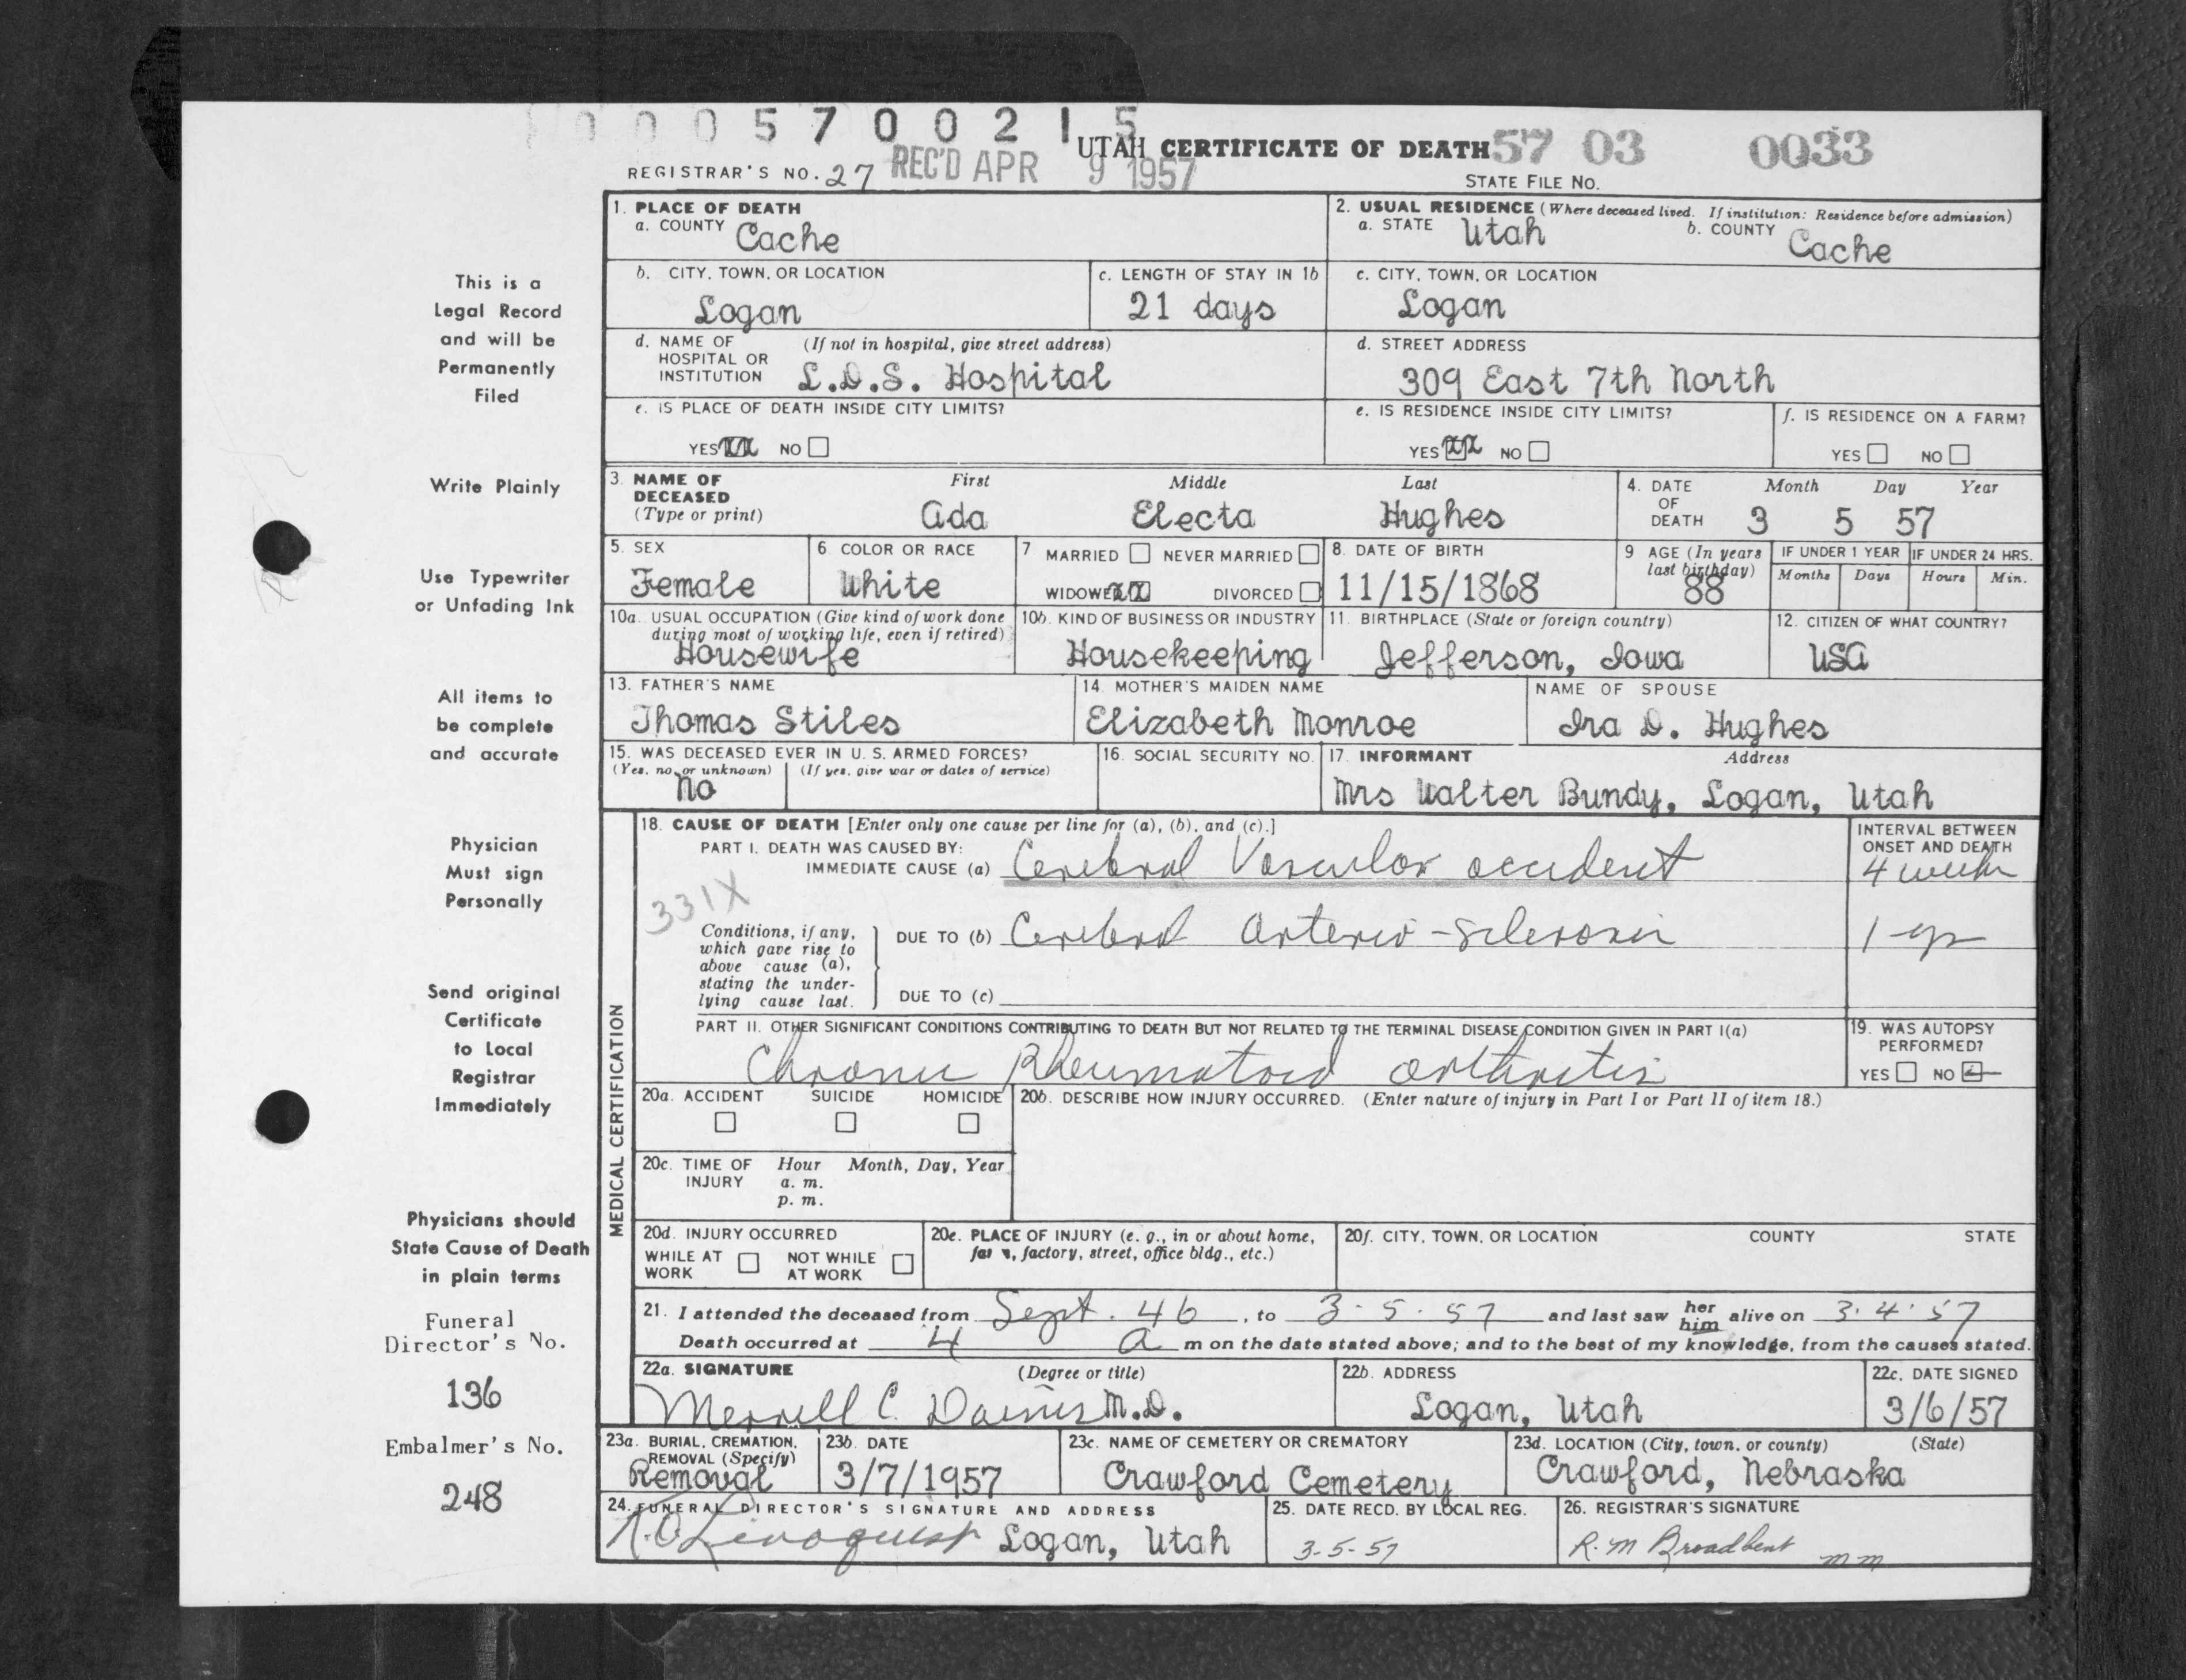 0 0 0 5 7 0 0 2 1 5
UTAH CERTIFICATE OF DEATH 57 03 0033
REGISTRAR'S NO. 27 REC'D APR 9 1957 STATE FILE NO.
1. PLACE OF DEATH
a. COUNTY Cache
2. USUAL RESIDENCE (Where deceased lived. If institution: Residence before admission)
a. STATE Utah b. COUNTY Cache
b. CITY, TOWN, OR LOCATION
Logan
c. LENGTH OF STAY IN 1b
21 days
c. CITY, TOWN, OR LOCATION
Logan
d. NAME OF HOSPITAL OR INSTITUTION (If not in hospital, give street address)
L.D.S. Hospital
d. STREET ADDRESS
309 East 7th North
e. IS PLACE OF DEATH INSIDE CITY LIMITS?
YES xx NO
e. IS RESIDENCE INSIDE CITY LIMITS?
YES xx NO
f. IS RESIDENCE ON A FARM?
YES NO
3. NAME OF DECEASED (Type or print)
First Middle Last
Ada Electa Hughes
4. DATE OF DEATH Month Day Year
3 5 57
5. SEX
Female
6. COLOR OR RACE
White
7 MARRIED NEVER MARRIED
WIDOWED xx DIVORCED
8. DATE OF BIRTH
11/15/1868
9 AGE (In years last birthday)
88
IF UNDER 1 YEAR IF UNDER 24 HRS.
Months Days Hours Min.
10a. USUAL OCCUPATION (Give kind of work done during most of working life, even if retired)
Housewife
10b. KIND OF BUSINESS OR INDUSTRY
Housekeeping
11. BIRTHPLACE (State or foreign country)
Jefferson, Iowa
12. CITIZEN OF WHAT COUNTRY?
USA
13. FATHER'S NAME
Thomas Stiles
14. MOTHER'S MAIDEN NAME
Elizabeth Monroe
NAME OF SPOUSE
Ira D. Hughes
15. WAS DECEASED EVER IN U. S. ARMED FORCES?
(Yes, no, or unknown) (If yes, give war or dates of service)
No
16. SOCIAL SECURITY NO.
17. INFORMANT Address
Mrs Walter Bundy, Logan, Utah
MEDICAL CERTIFICATION
18. CAUSE OF DEATH [Enter only one cause per line for (a), (b), and (c).]
PART I. DEATH WAS CAUSED BY:
IMMEDIATE CAUSE (a) Cerebral Vascular accident
INTERVAL BETWEEN ONSET AND DEATH
4 weeks
331X
Conditions, if any, which gave rise to above cause (a), stating the underlying cause last.
DUE TO (b) Cerebral Arterio-sclerosis
1 yr
DUE TO (c)
PART II. OTHER SIGNIFICANT CONDITIONS CONTRIBUTING TO DEATH BUT NOT RELATED TO THE TERMINAL DISEASE CONDITION GIVEN IN PART I(a)
Chronic Rheumatoid arthritis
19. WAS AUTOPSY PERFORMED?
YES NO
20a. ACCIDENT SUICIDE HOMICIDE
20b. DESCRIBE HOW INJURY OCCURRED. (Enter nature of injury in Part I or Part II of item 18.)
20c. TIME OF INJURY Hour Month, Day, Year
a. m.
p. m.
20d. INJURY OCCURRED
WHILE AT WORK NOT WHILE AT WORK
20e. PLACE OF INJURY (e. g., in or about home, farm, factory, street, office bldg., etc.)
20f. CITY, TOWN, OR LOCATION COUNTY STATE
21. I attended the deceased from Sept. 46, to 3-5-57 and last saw her him alive on 3-4-57
Death occurred at 4 a m on the date stated above; and to the best of my knowledge, from the causes stated.
22a. SIGNATURE (Degree or title)
Merrill C. Daines M.D.
22b. ADDRESS
Logan, Utah
22c. DATE SIGNED
3/6/57
23a. BURIAL, CREMATION, REMOVAL (Specify)
Removal
23b. DATE
3/7/1957
23c. NAME OF CEMETERY OR CREMATORY
Crawford Cemetery
23d. LOCATION (City, town, or county) (State)
Crawford, Nebraska
24. FUNERAL DIRECTOR'S SIGNATURE AND ADDRESS
N. O. Lindquist Logan, Utah
25. DATE RECD. BY LOCAL REG.
3-5-57
26. REGISTRAR'S SIGNATURE
R. M Broadbent mm
This is a
Legal Record
and will be
Permanently
Filed
Write Plainly
Use Typewriter
or Unfading Ink
All items to
be complete
and accurate
Physician
Must sign
Personally
Send original
Certificate
to Local
Registrar
Immediately
Physicians should
State Cause of Death
in plain terms
Funeral
Director's No.
136
Embalmer's No.
248